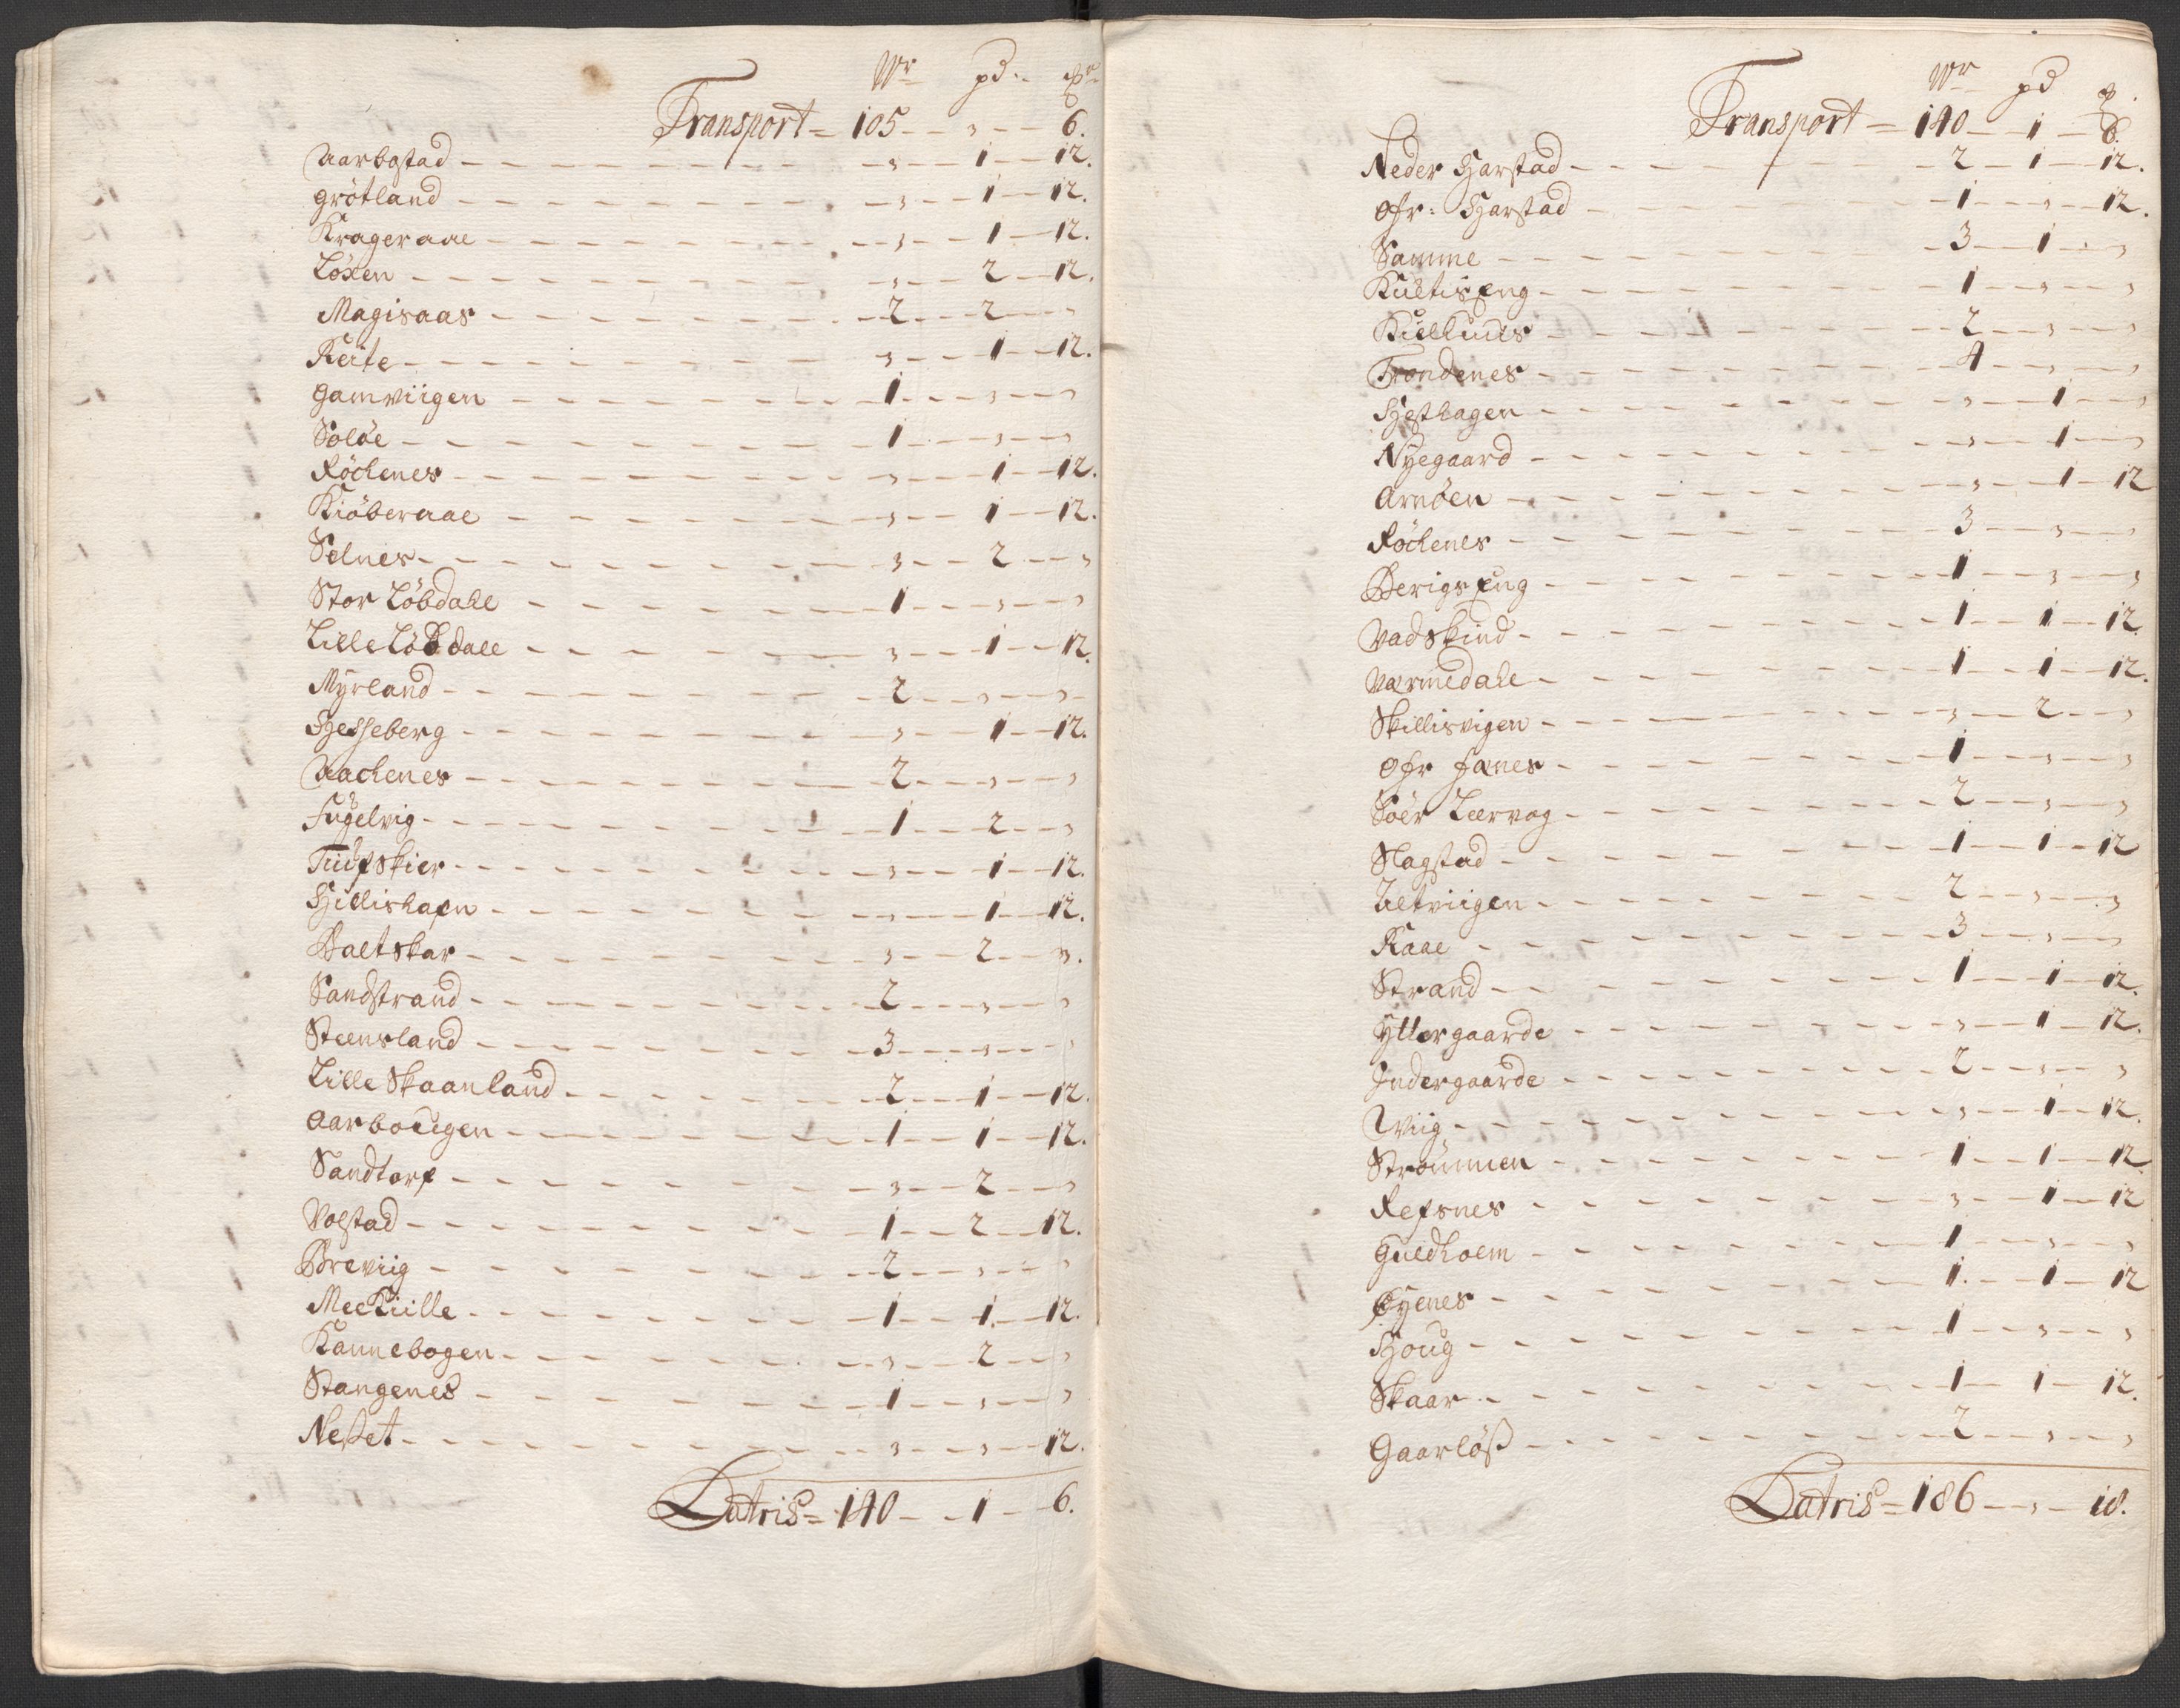 Wr pd. 
Transport = 105 - - " - - 6.
Aarbostad - " - 1 - 12.
Grötland - " - 1 - 12.
Krageraae - " - 1 - 12.
Löxen - " - 2 - 12.
Magisaas - 2 - 2 - "
Keite - " - 1 - 12.
Gamviigen - 1 - " - "
Soløe - 1 - " - "
Röchenes - " - 1 - 12.
Kiöberaae - " - 1 - 12.
Selnes - " - 2 - "
Stor Löbdahl - 1 - " - "
Lille Löbdall - " - 1 - 12.
Myrland - 2 - " - "
Hesseberg - " - 1 - 12.
Aachenes - 2 - " - "
Fugelvig - 1 - 2 - "
Tiufskier - " - 1 - 12.
Hillishafn - " - 1 - 12.
Baltskar - " - 2 - ".
Sandstrand - 2 - " - "
Steensland - 3 - " - "
Lille Skaanland - 2 - 1 - 12.
Aarbougen - 1 - 1 - 12.
Sandtorf - " - 2 - "
Volstad - 1 - 2 - 12.
Breviig - 2 - " - "
Melkiille - 1 - 1 - 12.
Kannebogen - " - 2 - "
Stangenes - 1 - " - "
Neßet - " - " - 12.
Latris = 140 - - 1 - 6.
Wr pd
Transport = 140 - 1 - 6.
Neder Harstad - 2 - 1 - 12.
Ofr: Harstad - 1 - " - 12.
Samme - 3 - 1 - "
Kultiseng - 1 - " - "
Kielhuus - 2 - " - "
Trondenes - 4 - " - "
Hesthagen - " - 1 - "
Nyegaard - " - 1 - "
Arnöen - " - 1 - 12
Röchenes - 3 - " - "
Berigseng - 1 - " - "
Vadskind - 1 - 1 - 12.
Værmedahl - 1 - 1 - 12.
Skillisvigen - " - 2 - "
Ofr Fanes - 1 - " - "
Söer Leervog - 2 - " - "
Slagstad - 1 - 1 - 12
Altviigen - 2 - " - "
Kaae - 3 - " - "
Strand - 1 - 1 - 12.
Yttergaarde - " - 1 - 12.
Indergaarde - 2 - " - "
Wiig - " - 1 - 12.
Strømmen - 1 - 1 - 12
Refsnes - " - 1 - 12
Guldholm - 1 - " - "
Eyenes - 1 - 1 - 12
Houg - 1 - " - "
Skaar - 1 - 1 - 12.
Gaarlöß - 2 - " - "
Latris = 186 - " - 18.